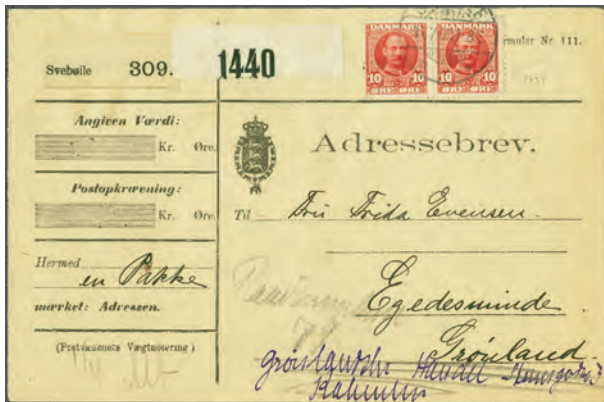 Svebølle 309.
1440
DANMARK
10 10
ØRE ØRE
DANMARK
10 10
ØRE ØRE
Formular Nr. 111.
Angiven Værdi:
Kr. Øre.
Postopkrævning:
Kr. Øre.
Hermed
en Pakke
mærket: Adressen.
(Postvæsenets Vægtnotering)
Adressebrev.
Til Fru Frida Evensen.
Egedesminde
Grönland.
79
grönlandske Handel